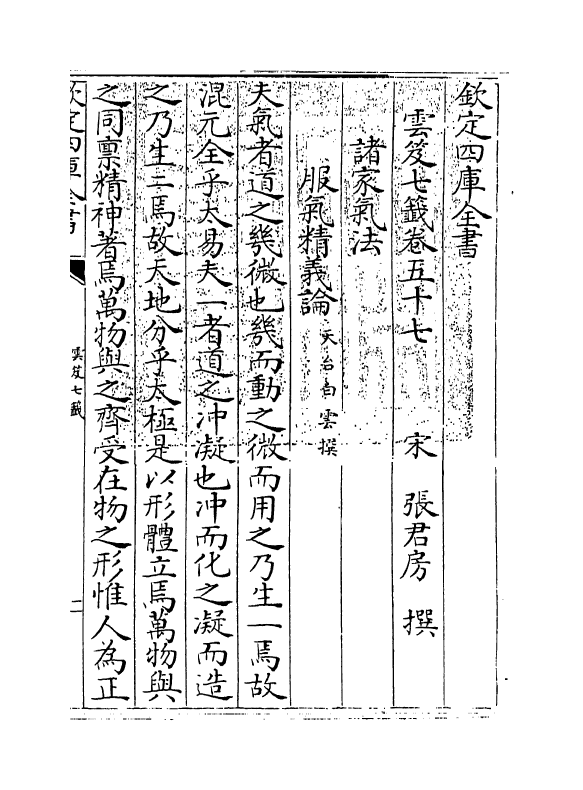 欽定四庫全書
雲笈七籤卷五十七 宋 張君房 撰
諸家氣法
服氣精義論 天台白雲撰
夫氣者道之幾微也幾而動之微而用之乃生一焉故
混元全乎太易夫一者道之沖凝也沖而化之凝而造
之乃生二焉故天地分乎太極是以形體立焉萬物與
之同禀精神著焉萬物與之齊受在物之形惟人為正
欽定四庫全書
雲笈七籤